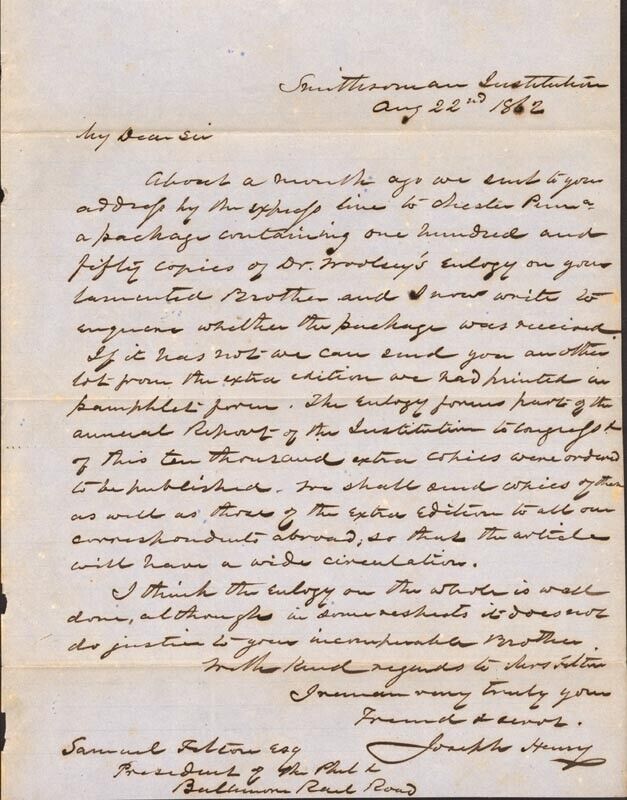 Smithsonian Institution
Aug 22nd 1862
My Dear Sir
About a month ago we sent to your
address by the express line to Chester Penna
a package containing one hundred and
fifty copies of Dr. Woolsey's Eulogy on your
lamented Brother and I now write to
enquire whether the package was received.
If it has not we can send you another
lot from the extra edition we had printed in
pamphlet form. The Eulogy forms part of the
annual Report of the Institution to Congress &
of this ten thousand extra copies were ordered
to be published. We shall send copies of them
as well as those of the Extra Edition to all our
correspondents abroad, so that the article
will have a wide circulation.
I think the Eulogy on the whole is well
done, although in some respects it does not
do justice to your incomparable Brother
With kind regards to Mrs Felton
I remain very truly your
Friend & servt.
Joseph Henry
Samuel Felton Esq
President of the Phil &
Baltimore Rail Road